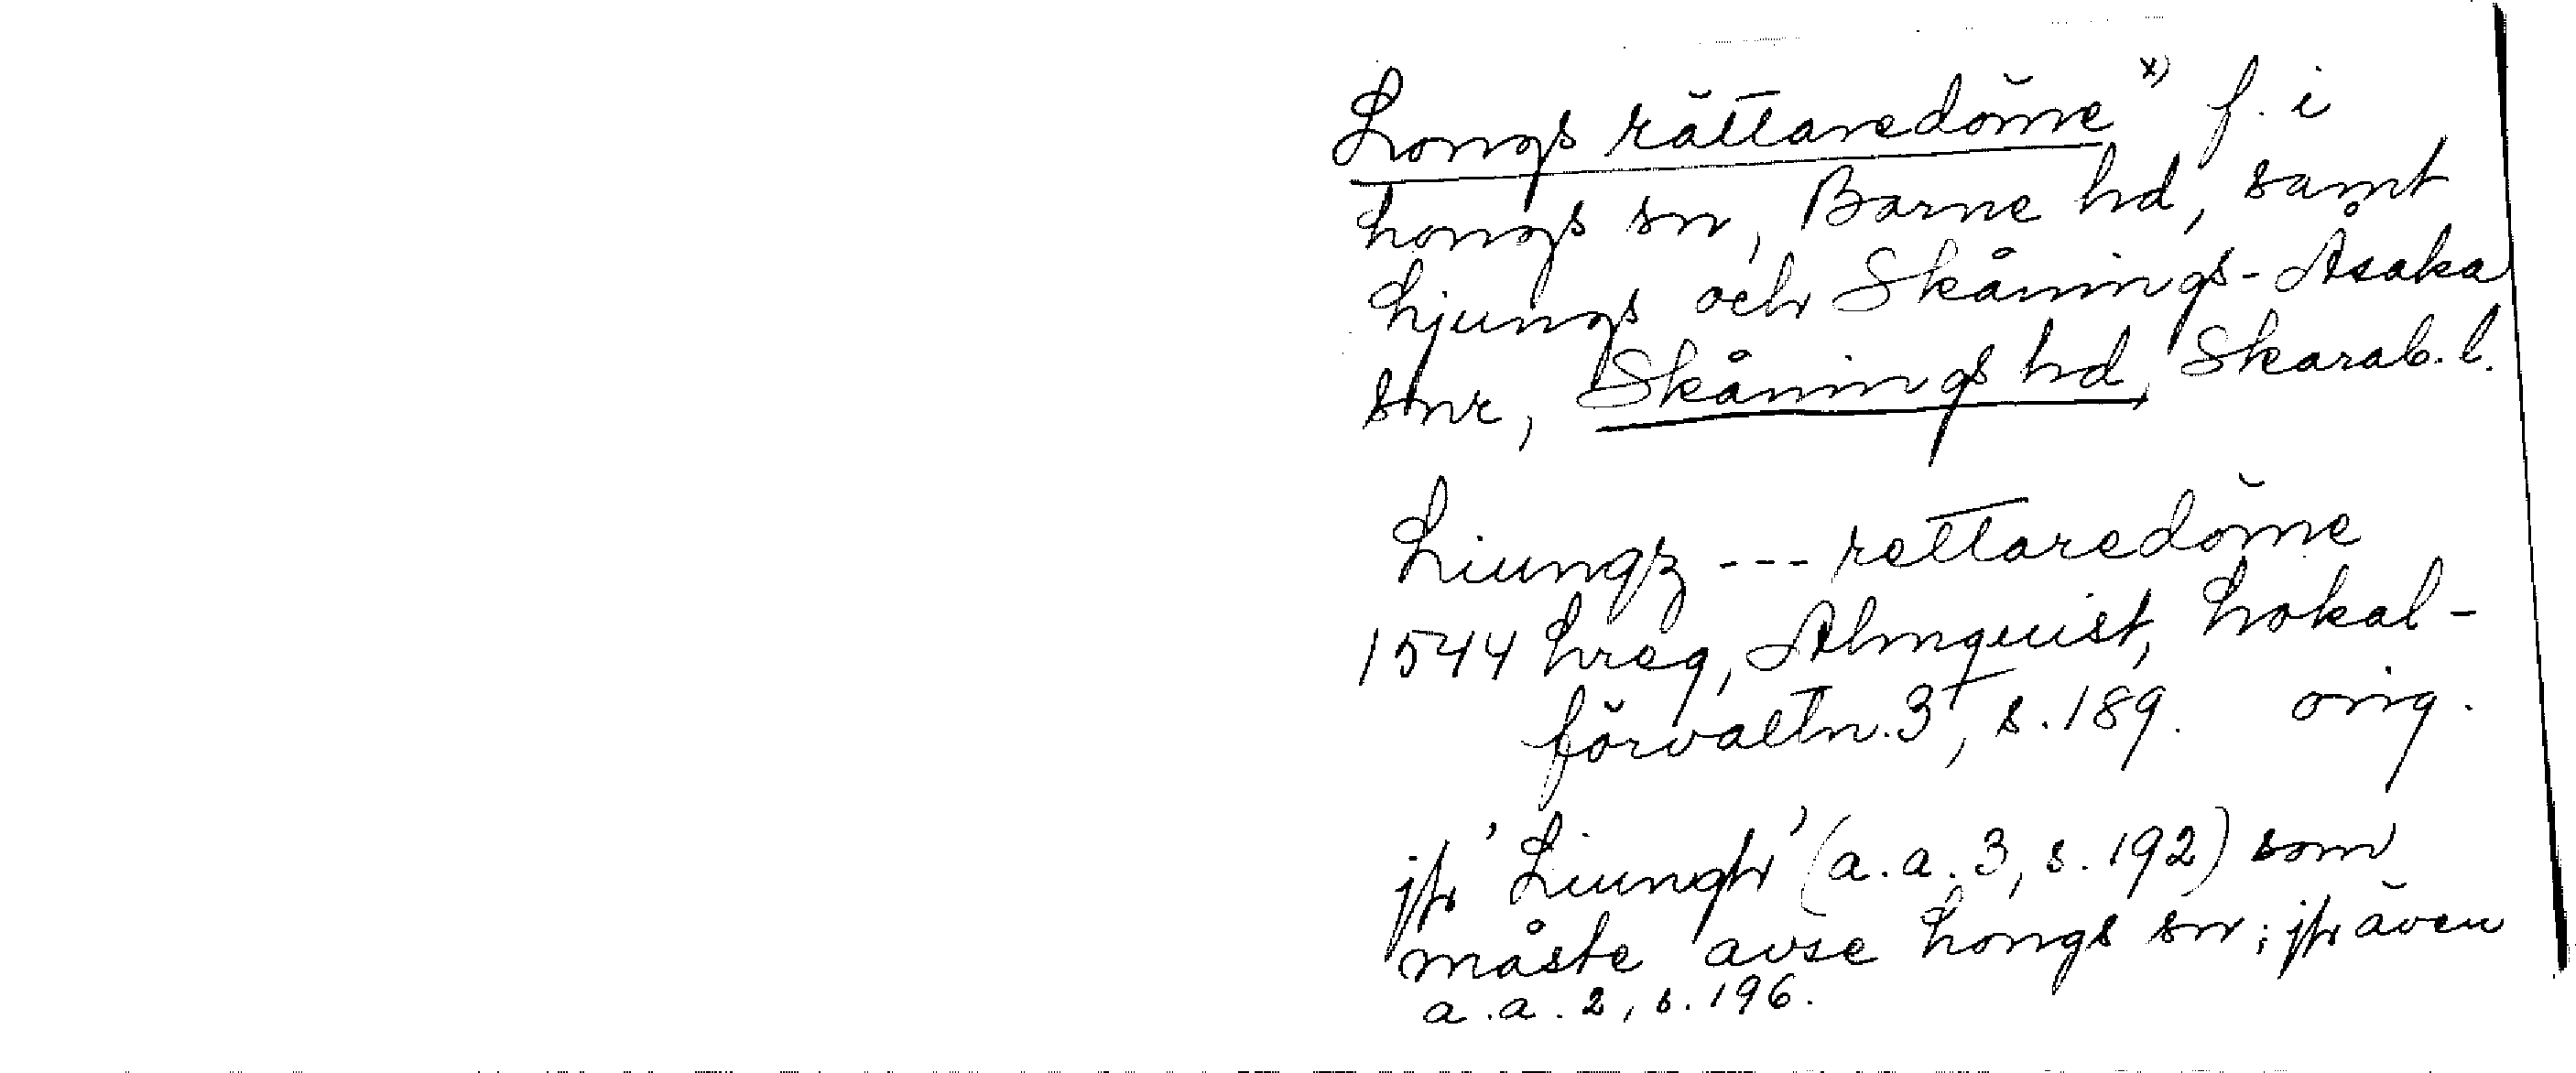 Longs rättaredöme x) f. i
Longs sn, Barne hd, samt
Ljungs och Skånings-Åsaka
snr, Skånings hd, Skarab. l.
Liungz --- rettaredöme
1544 Lreg, Almquist, Lokal-
förvaltn. 3, s. 189. orig.
jfr 'Liungh' (a.a. 3, s. 192) som
måste avse Longs sn; jfr även
a.a. 2, s. 196.